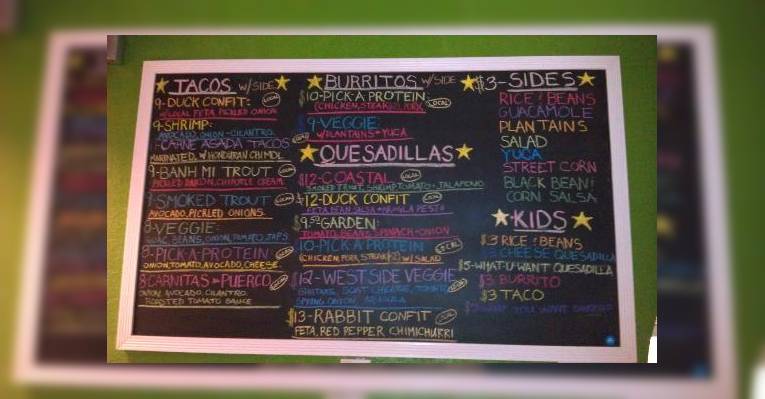 TACOS W/SIDE
9-DUCK CONFIT: LOCAL
W/LOCAL FETA, PICKLED ONION
9-SHRIMP:
AVOCADO, ONION-CILANTRO
CARNE ASADA TACOS
MARINATED, W/HONDURAN CHIMOL
9-BANH MI TROUT LOCAL
PICKLED DAIKON, CHIPOTLE CREAM
9-SMOKED TROUT LOCAL
AVOCADO, PICKLED ONIONS
8-VEGGIE:
GUAC, BEANS, ONION, TOMATO, JAPS
8-PICK-A-PROTEIN LOCAL
ONION, TOMATO, AVOCADO, CHEESE
8 CARNITAS PUERCO LOCAL
ONION, AVOCADO, CILANTRO,
ROASTED TOMATO SAUCE
BURRITOS W/SIDE
$10-PICK-A PROTEIN
(CHICKEN, STEAK, PORK LOCAL
$9-VEGGIE:
W/PLANTAINS + YUCA
QUESADILLAS
$12-COASTAL LOCAL
SMOKED TROUT, SHRIMP, TOMATO + JALAPENO
$12-DUCK CONFIT LOCAL
FETA BEAN SALSA PESTO
$9.50 GARDEN:
TOMATO, BEANS, SPINACH + ONION
10-PICK A PROTEIN LOCAL
(CHICKEN, PORK, STEAK W/SALAD
$12-WEST SIDE VEGGIE
GOAT CHEESE, TOMATO LOCAL
SPRING ONION, ARUGULA
$13-RABBIT CONFIT LOCAL
FETA, RED PEPPER CHIMICHURRI
$3-SIDES
RICE & BEANS
GUACAMOLE
PLANTAINS
SALAD
YUCA
STREET CORN
BLACK BEAN &
CORN SALSA
KIDS
$3 RICE & BEANS
CHEESE QUESADILLA
$5-WHAT U WANT QUESADILLA
$3 BURRITO
$3 TACO
WHAT YOU WANT